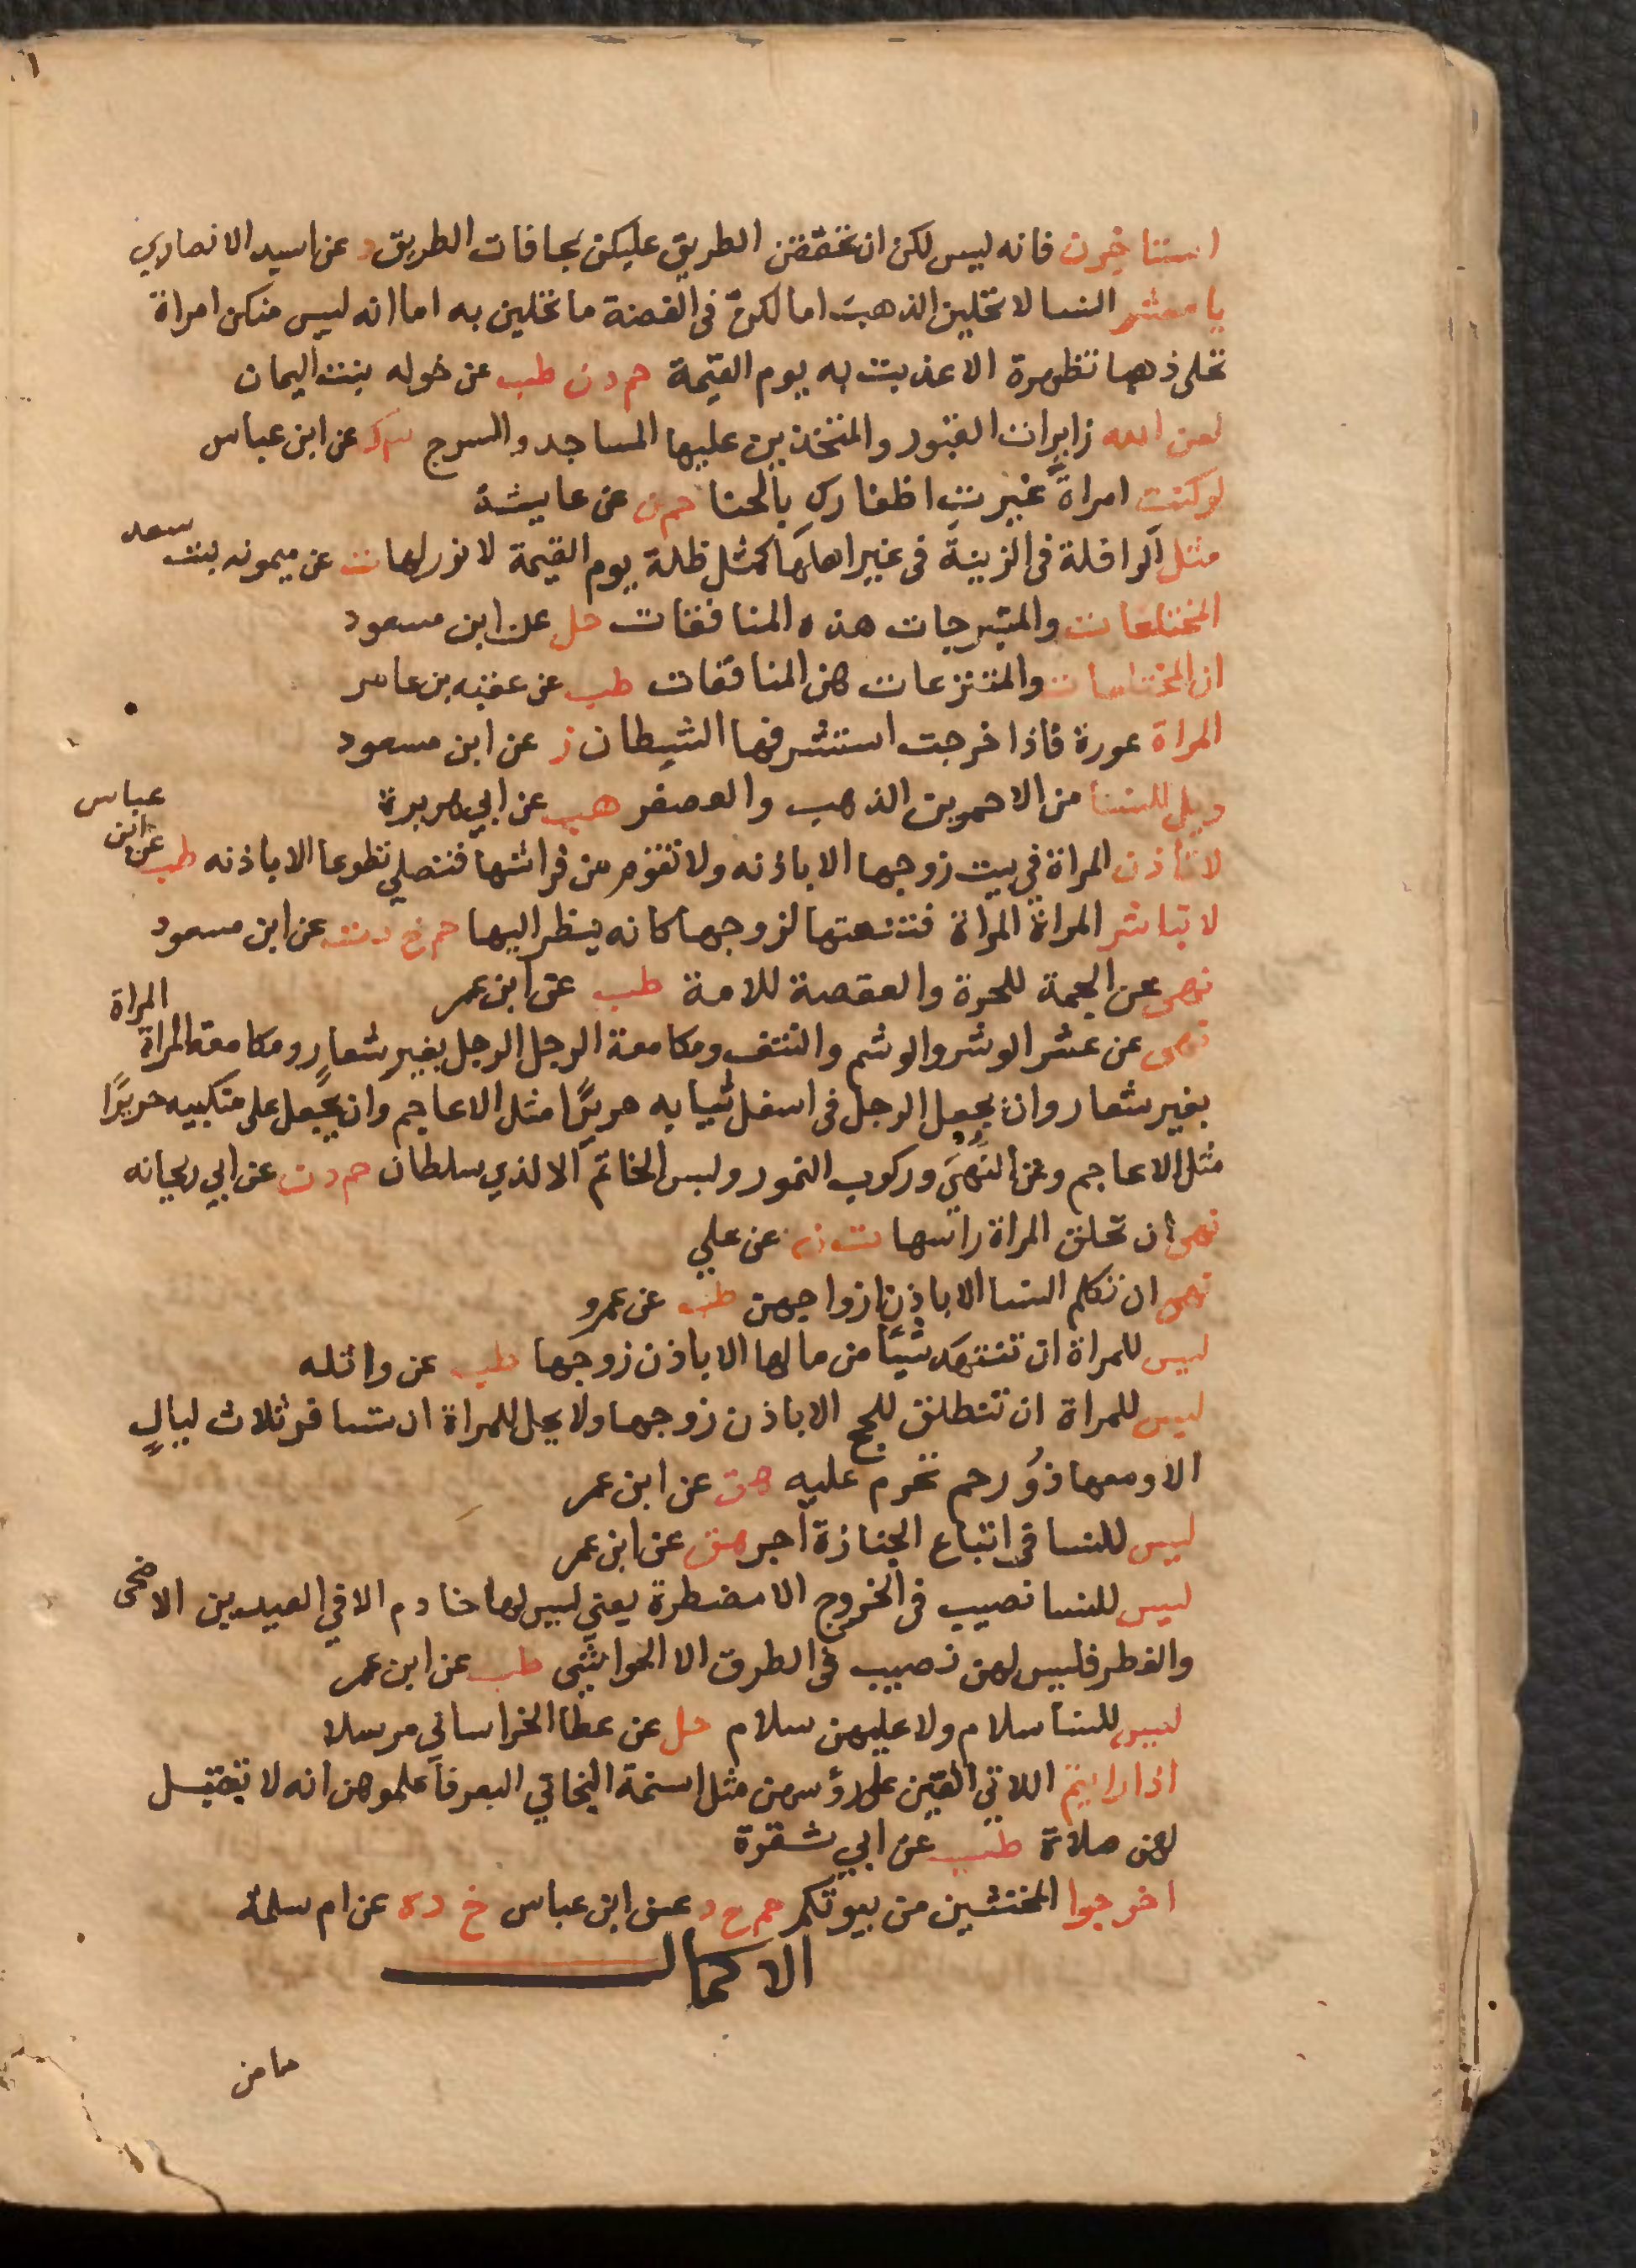 استاخرن فانه ليس لكن ان تحققن الطريق عليكن بحافات الطريق د عن اسيد الانصاري
يا معشر النسا لا تحلين الذهب اما لكن في الفضة ما تحلين به اما انه ليس منكن امراة
تحلى ذهبا تظهرة الا عذبت به يوم القيمة حم د ن طب عن خوله بنت اليمان
لعن الله زايرات القبور والمتخذين عليها المساجد والسرج ٣ ك عن ابن عباس
لو كنت امراة غيرت اظفارك بالحنا حم ن عن عايشة
مثل الرافلة في الزينة في غير اهلها كمثل ظلة يوم القيمة لا نور لها ت عن ميمونه بنت سعد
المختلعات والمتبرجات هذه المنافقات حل عن ابن مسعود
ان المختلعات والمنتزعات هن المنافقات طب عن عقبه بن عامر
المراة عورة فاذا خرجت استشرفها الشيطان ز عن ابن مسعود
ويل للنسا من الاحمرين الذهب والعصفر هب عن ابي هريرة
لا تاذن المراة في بيت زوجها الا باذنه ولا تقوم من فراشها فتصلي تطوعا الا باذنه طب عن ابن عباس
لا تباشر المراة المراة فتنعتها لزوجها كانه ينظر اليها حم خ د ت عن ابن مسعود
نهى عن الجمة للحرة والعقصة للامة طب عن ابن عمر
نهى عن عشر الوشر والوشم والنتف ومكامعة الرجل الرجل بغير شعار ومكامعة المراة المراة
بغير شعار وان يجعل الرجل في اسفل ثيابه حريرًا مثل الاعاجم وان يجعل على منكبيه حريرًا
مثل الاعاجم وعن النهبى وركوب النمور ولبس الخاتم الا لذي سلطان حم د ن عن ابي ريحانه
نهى ان تحلق المراة راسها ت ن عن علي
نهى ان تكلم النسا الا باذن ازواجهن طب عن عمرو
ليس للمراة ان تنتهك شيئا من مالها الا باذن زوجها طب عن واثله
ليس للمراة ان تنطلق للحج الا باذن زوجها ولا يحل للمراة ان تسافر ثلاث ليالٍ
الا ومعها ذو رحم تحرم عليه هق عن ابن عمر
ليس للنسا في اتباع الجنازة اجر هق عن ابن عمر
ليس للنسا نصيب في الخروج الا مضطرة يعني ليس لها خادم الا في العيدين الاضحى
والفطر فليس لهن نصيب في الطرق الا الحواشى طب عن ابن عمر
ليس للنسا سلام ولا عليهن سلام حل عن عطا الخراساني مرسلا
اذا رايتم اللاتي القين على رؤسهن مثل اسنمة البخاتي البعر فاعلموهن انه لا تقبل
لهن صلاة طب عن ابي شقرة
اخرجوا المخنثين من بيوتكم حم خ د عن ابن عباس خ د ه عن ام سلمة
الاكمال
ما من